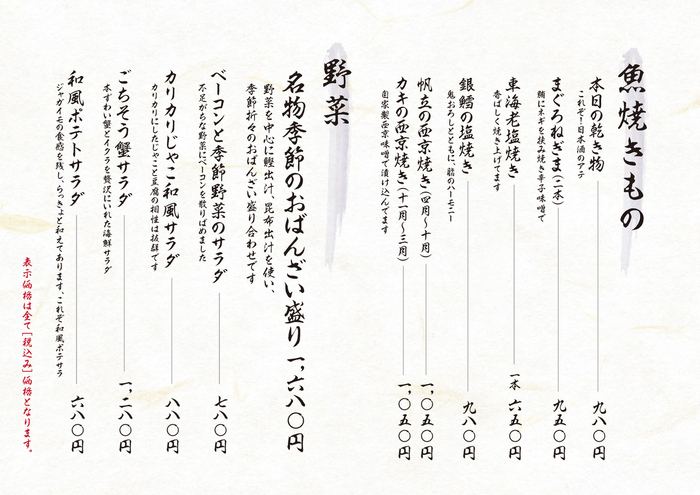 魚焼きもの
本日の乾き物 九八〇円
これぞ！日本酒のアテ
まぐろねぎま（二本） 九五〇円
鮪にネギを挟み焼き辛子味噌で
車海老塩焼き 一本 六五〇円
香ばしく焼き上げてます
銀鱈の塩焼き 九八〇円
鬼おろしとともに、脂のハーモニー
帆立の西京焼き（四月～十月） 一，〇五〇円
カキの西京焼き（十一月～三月） 一，〇五〇円
自家製西京味噌で漬け込んでます
野菜
名物季節のおばんざい盛り 一，六八〇円
野菜を中心に鰹出汁、昆布出汁を使い、
季節折々のおばんざい盛り合わせです
ベーコンと季節野菜のサラダ 七八〇円
不足がちな野菜にベーコンを散りばめました
カリカリじゃこ和風サラダ 八八〇円
カリカリにしたじゃこと豆腐の相性は抜群です
ごちそう蟹サラダ 一，二八〇円
本ずわい蟹とイクラを贅沢にいれた海鮮サラダ
和風ポテトサラダ 六八〇円
ジャガイモの食感を残し、らっきょと和えてあります、これぞ和風ポテサラ
表示価格は全て［税込み］価格となります。